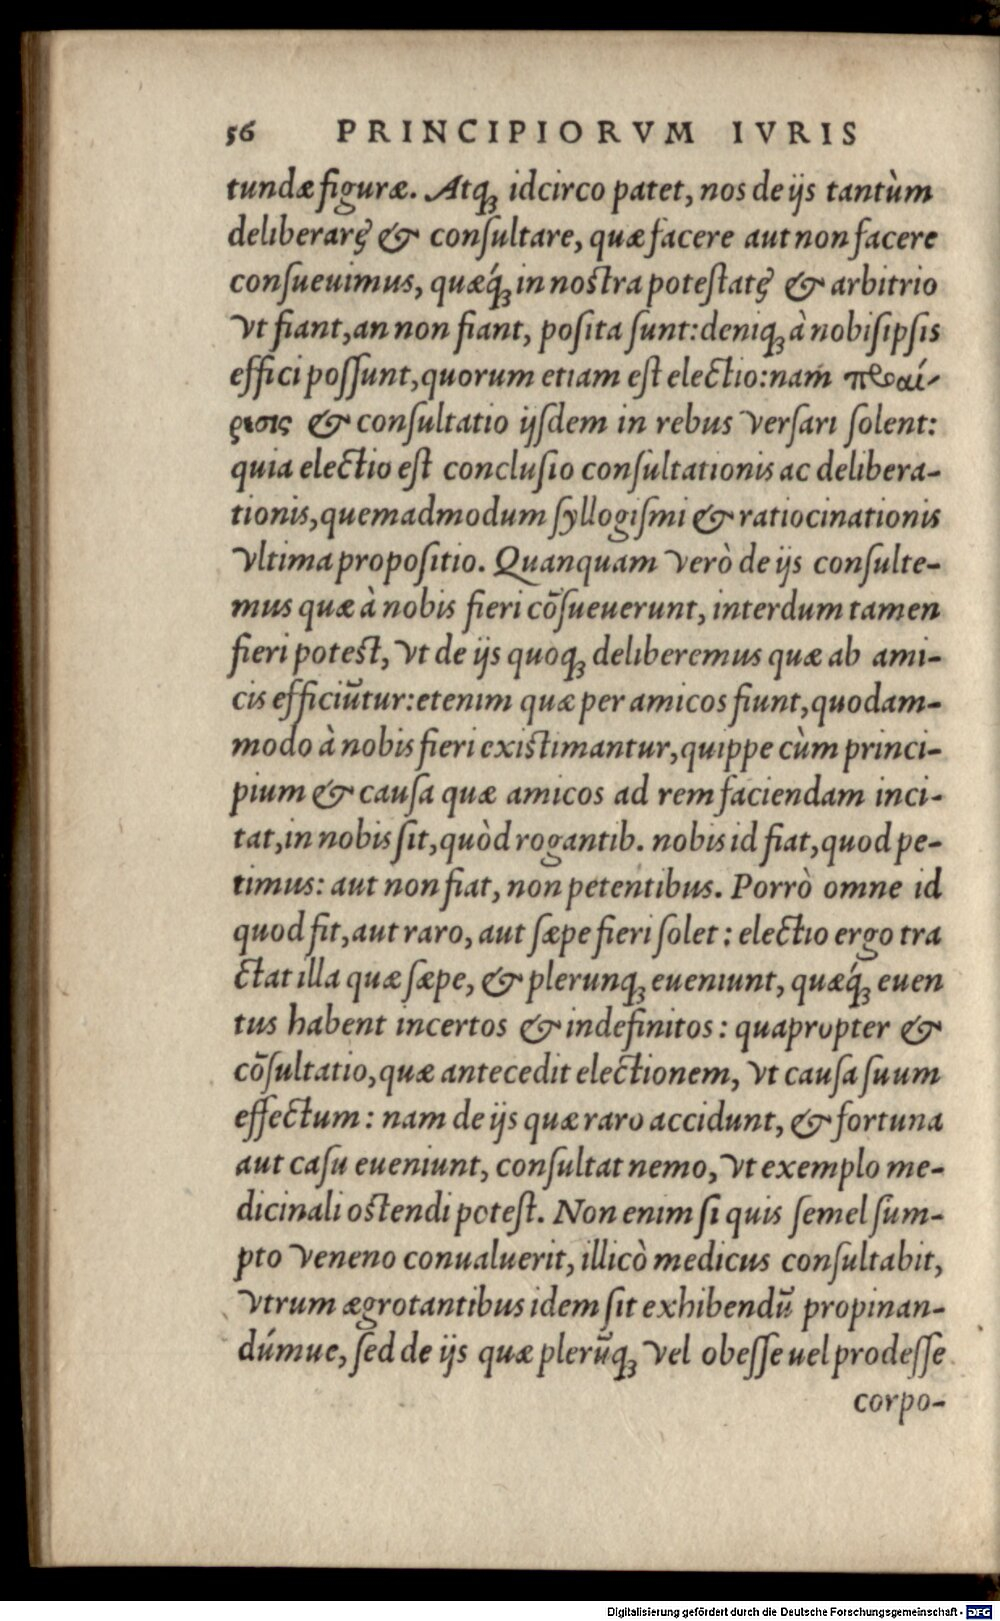 56 PRINCIPIORVM IVRIS
tundæ figuræ. Atq́ue idcirco patet, nos de ijs tantùm
deliberare & consultare, quæ facere aut non facere
consueuimus, quæq́ꝫ in nostra potestate & arbitrio
Vt fiant, an non fiant, posita sunt: deniqꝫ à nobisipsis
effici possunt, quorum etiam est electio: nam προαί-
ρεσις & consultatio ijsdem in rebus Versari solent:
quia electio est conclusio consultationis ac delibera-
tionis, quemadmodum syllogismi & ratiocinationis
Vltima propositio. Quanquam Verò de ijs consulte-
mus quæ à nobis fieri cōsueuerunt, interdum tamen
fieri potest, Vt de ijs quoqꝫ deliberemus quæ ab ami-
cis efficiūtur: etenim quæ per amicos fiunt, quodam-
modo à nobis fieri existimantur, quippe cùm princi-
pium & causa quæ amicos ad rem faciendam inci-
tat, in nobis sit, quòd rogantib. nobis id fiat, quod pe-
timus: aut non fiat, non petentibus. Porrò omne id
quod fit, aut raro, aut sæpe fieri solet: electio ergo tra
ctat illa quæ sæpe, & plerunqꝫ eueniunt, quæq́ꝫ euen
tus habent incertos & indefinitos: quapropter &
cōsultatio, quæ antecedit electionem, Vt causa suum
effectum: nam de ijs quæ raro accidunt, & fortuna
aut casu eueniunt, consultat nemo, Vt exemplo me-
dicinali ostendi potest. Non enim si quis semel sum-
pto Veneno conualuerit, illicò medicus consultabit,
Vtrum ægrotantibus idem sit exhibendū propinan-
dúmue, sed de ijs quæ plerūqꝫ Vel obesse uel prodesse
corpo-
Digitalisierung gefördert durch die Deutsche Forschungsgemeinschaft - DFG